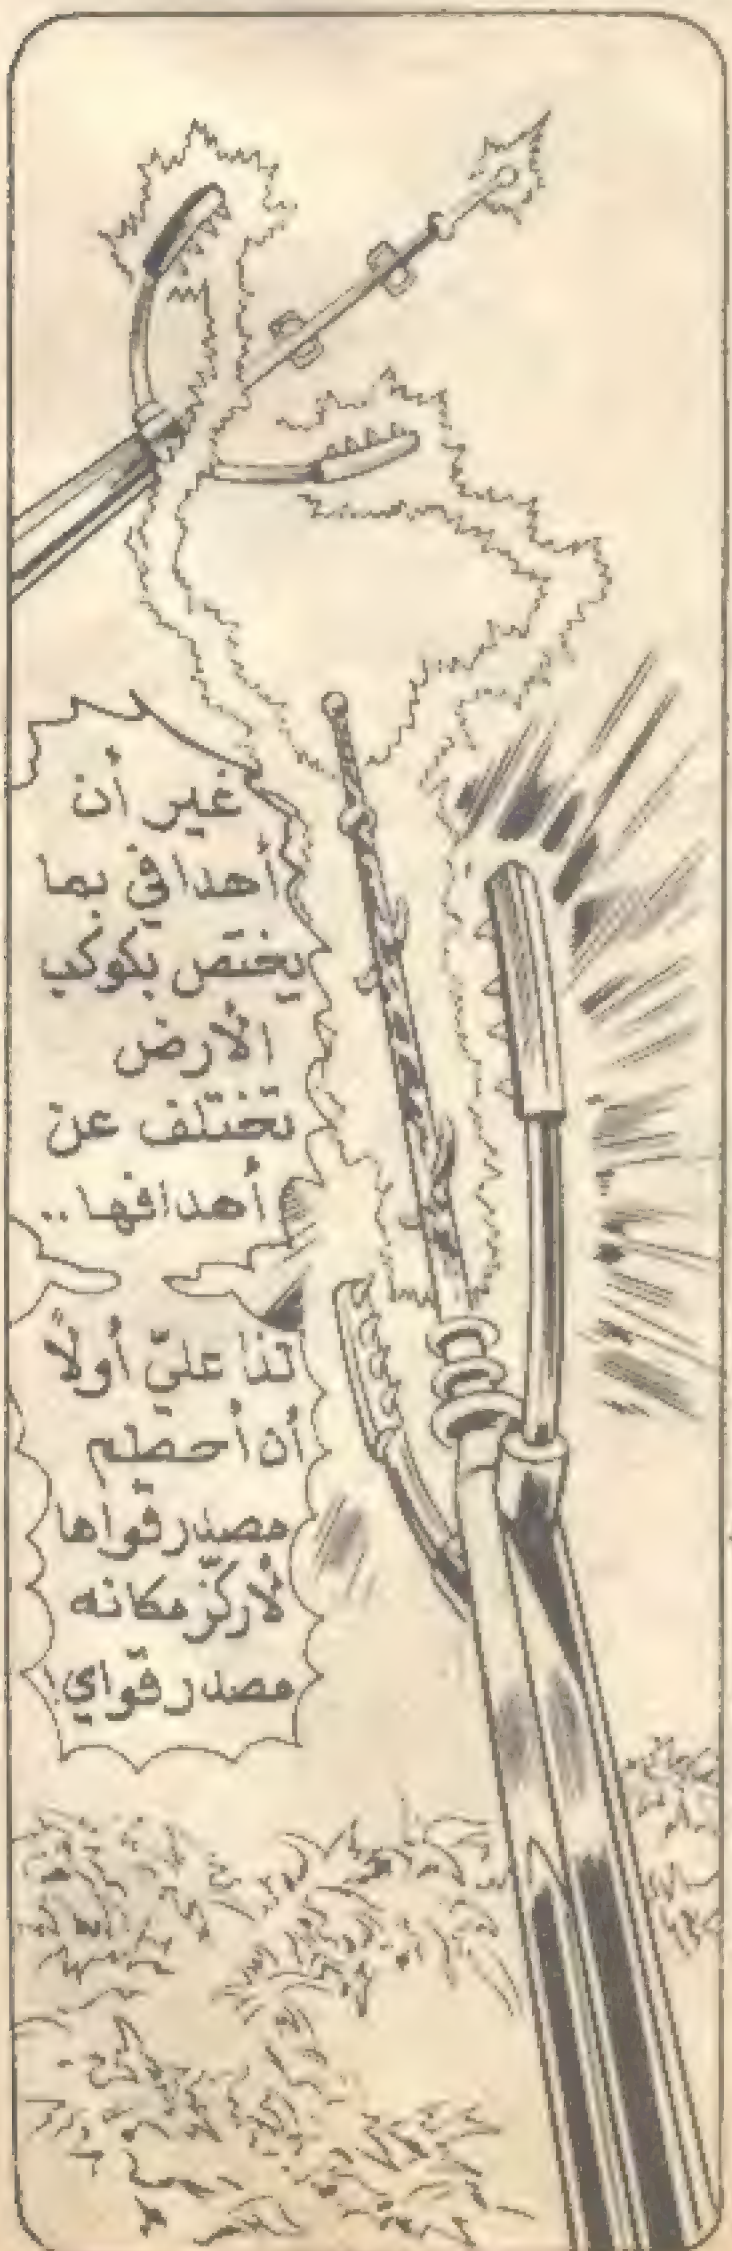 غير أن
أهدافي بما
يختص بكوكب
الأرض
تختلف عن
أهدافها..
لذا عليّ أولاً
أن أحطّم
مصدر قواها
لأركّز مكانه
مصدر قواي!